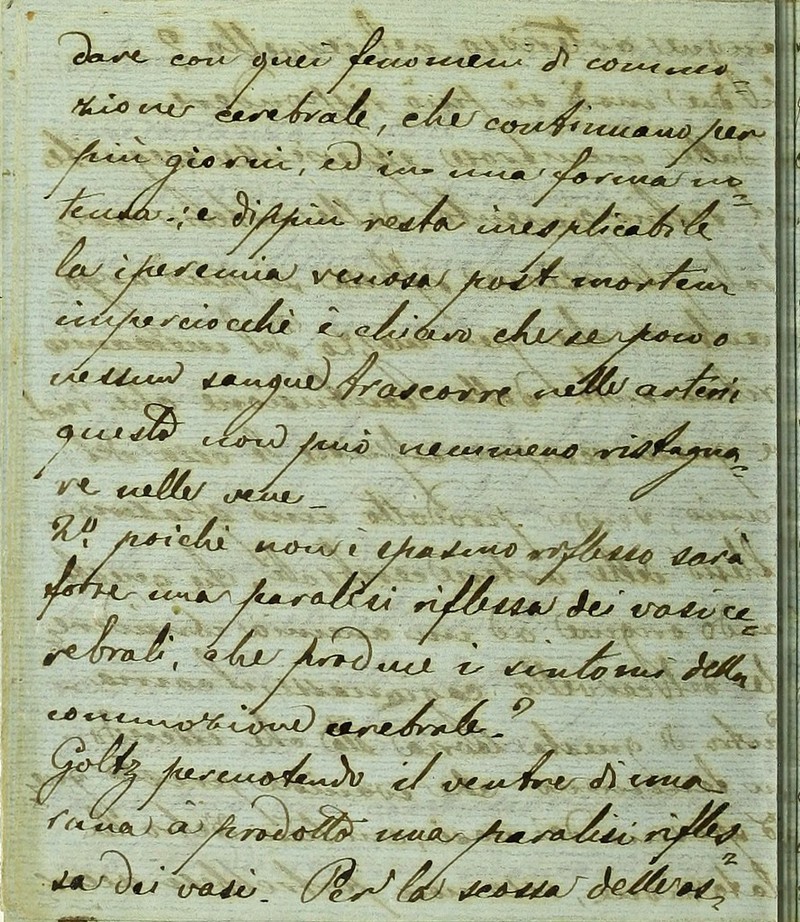 dare con quei fenomeni di commo=
zione cerebrale, che continuano per
più giorni, ed in una forma in=
tensa.; e dippiù resta inesplicabile
la iperemia venosa post mortem
imperciocchè è chiaro che se poco o
nessun sangue trascorre nelle arterie
questo non può nemmeno ristagna=
re nelle vene_
2º. poichè non è spasmo riflesso sarà
forse una paralisi riflessa dei vasi ce=
rebrali, che produce i sintomi della
commozione cerebrale_?
Goltz percuotendo il ventre di una
rana à prodotto una paralisi rifles=
sa dei vasi_ Per la scossa delle os=